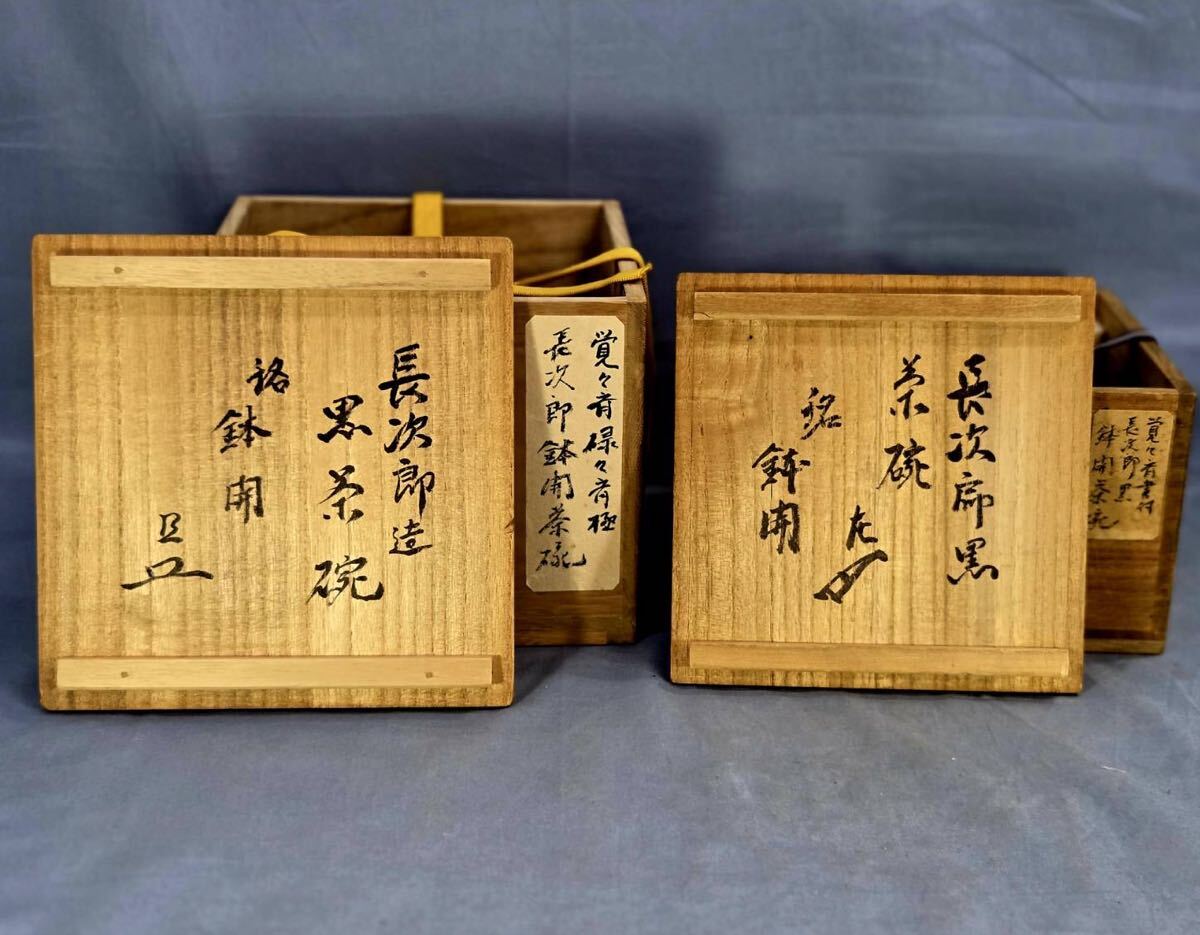 長次郎造
黒茶碗
銘
鉢開
覚々斎碌々斎極
長次郎鉢開茶碗
長次郎黒
茶碗
左
銘
鉢開
覚々斎書付
長次郎黒
鉢開茶碗